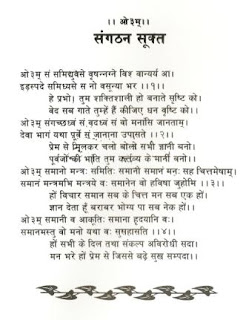 ।। ओ३म् ।।
संगठन सूक्त
ओ३म् सं समिद्युवसे वृषन्नग्ने विश्वान्यर्य आ।
इडस्पदे समिध्यसे स नो वसून्या भर ।।१।।
हे प्रभो! तुम शक्तिशाली हो बनाते सृष्टि को।
वेद सब गाते तुम्हें हैं कीजिए धन वृष्टि को।
ओ३म् संगच्छध्वं संवदध्वं सं वो मनाँसि जानताम्।
देवा भागं यथा पूर्वे सं जानाना उपासते ।।२।।
प्रेम से मिलकर चलो बोलो सभी ज्ञानी बनो।
पूर्वजों की भांति तुम कर्त्तव्य के मानी बनो।।
ओ३म् समानो मन्त्रः समितिः समानी समानं मनः सह चित्तमेषाम्।
समानं मन्त्रमभि मन्त्रये वः समानेन वो हविषा जुहोमि ।।३।।
हों विचार समान सब के चित्त मन सब एक हों।
ज्ञान देता हूँ बराबर भोग्य पा सब नेक हों।।
ओ३म् समानी व आकूतिः समाना हृदयानि वः।
समानमस्तु वो मनो यथा वः सुसहासति ।।४।।
हों सभी के दिल तथा संकल्प अविरोधी सदा।
मन भरे हों प्रेम से जिससे बढ़े सुख सम्पदा।।